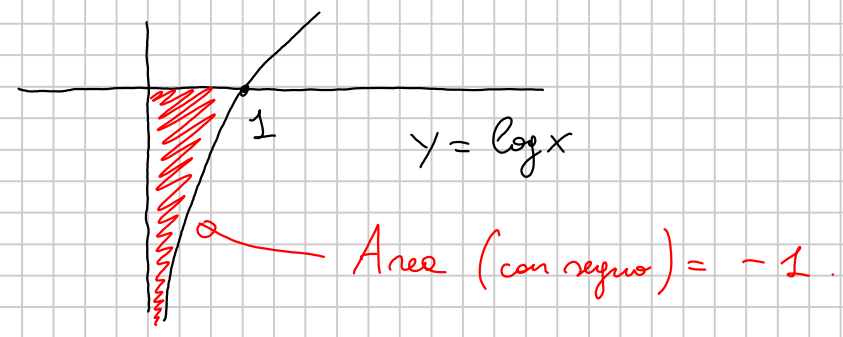 1
y = log x
Area (con segno) = - 1.